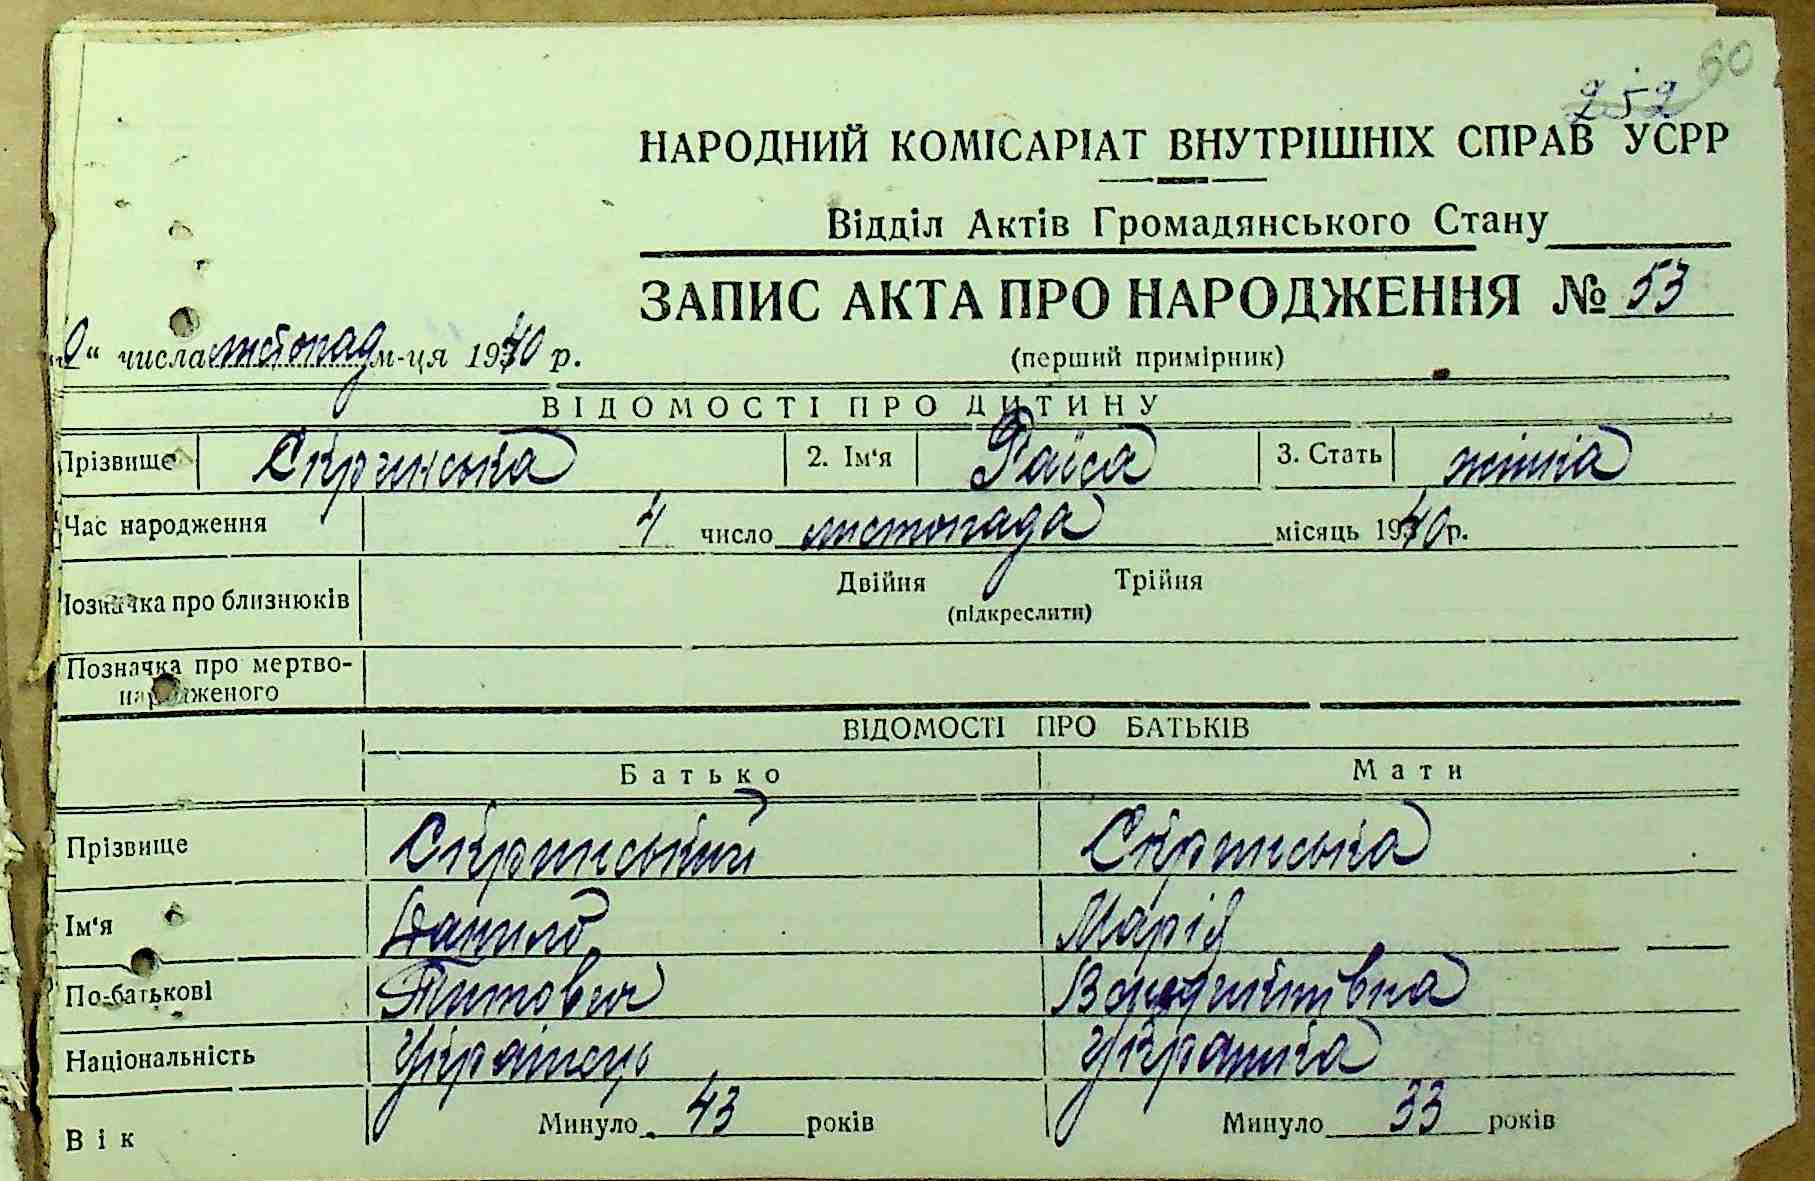 60
252
НАРОДНИЙ КОМІСАРІАТ ВНУТРІШНІХ СПРАВ УСРР
Відділ Актів Громадянського Стану
ЗАПИС АКТА ПРО НАРОДЖЕННЯ № 53
0" числа листопад м-ця 1940 р.
(перший примірник)
ВІДОМОСТІ ПРО ДИТИНУ
Прізвище Скринська 2. Ім'я Раїса 3. Стать жіноча
Час народження 4 число листопада місяць 1940 р.
Позначка про близнюків Двійня Трійня
(підкреслити)
Позначка про мертво-
народженого
ВІДОМОСТІ ПРО БАТЬКІВ
Батько Мати
Прізвище Скринський Скринська
Ім'я Данило Марія
По-батькові Титович
Національність Українець Українка
Вік Минуло 43 років Минуло 33 років